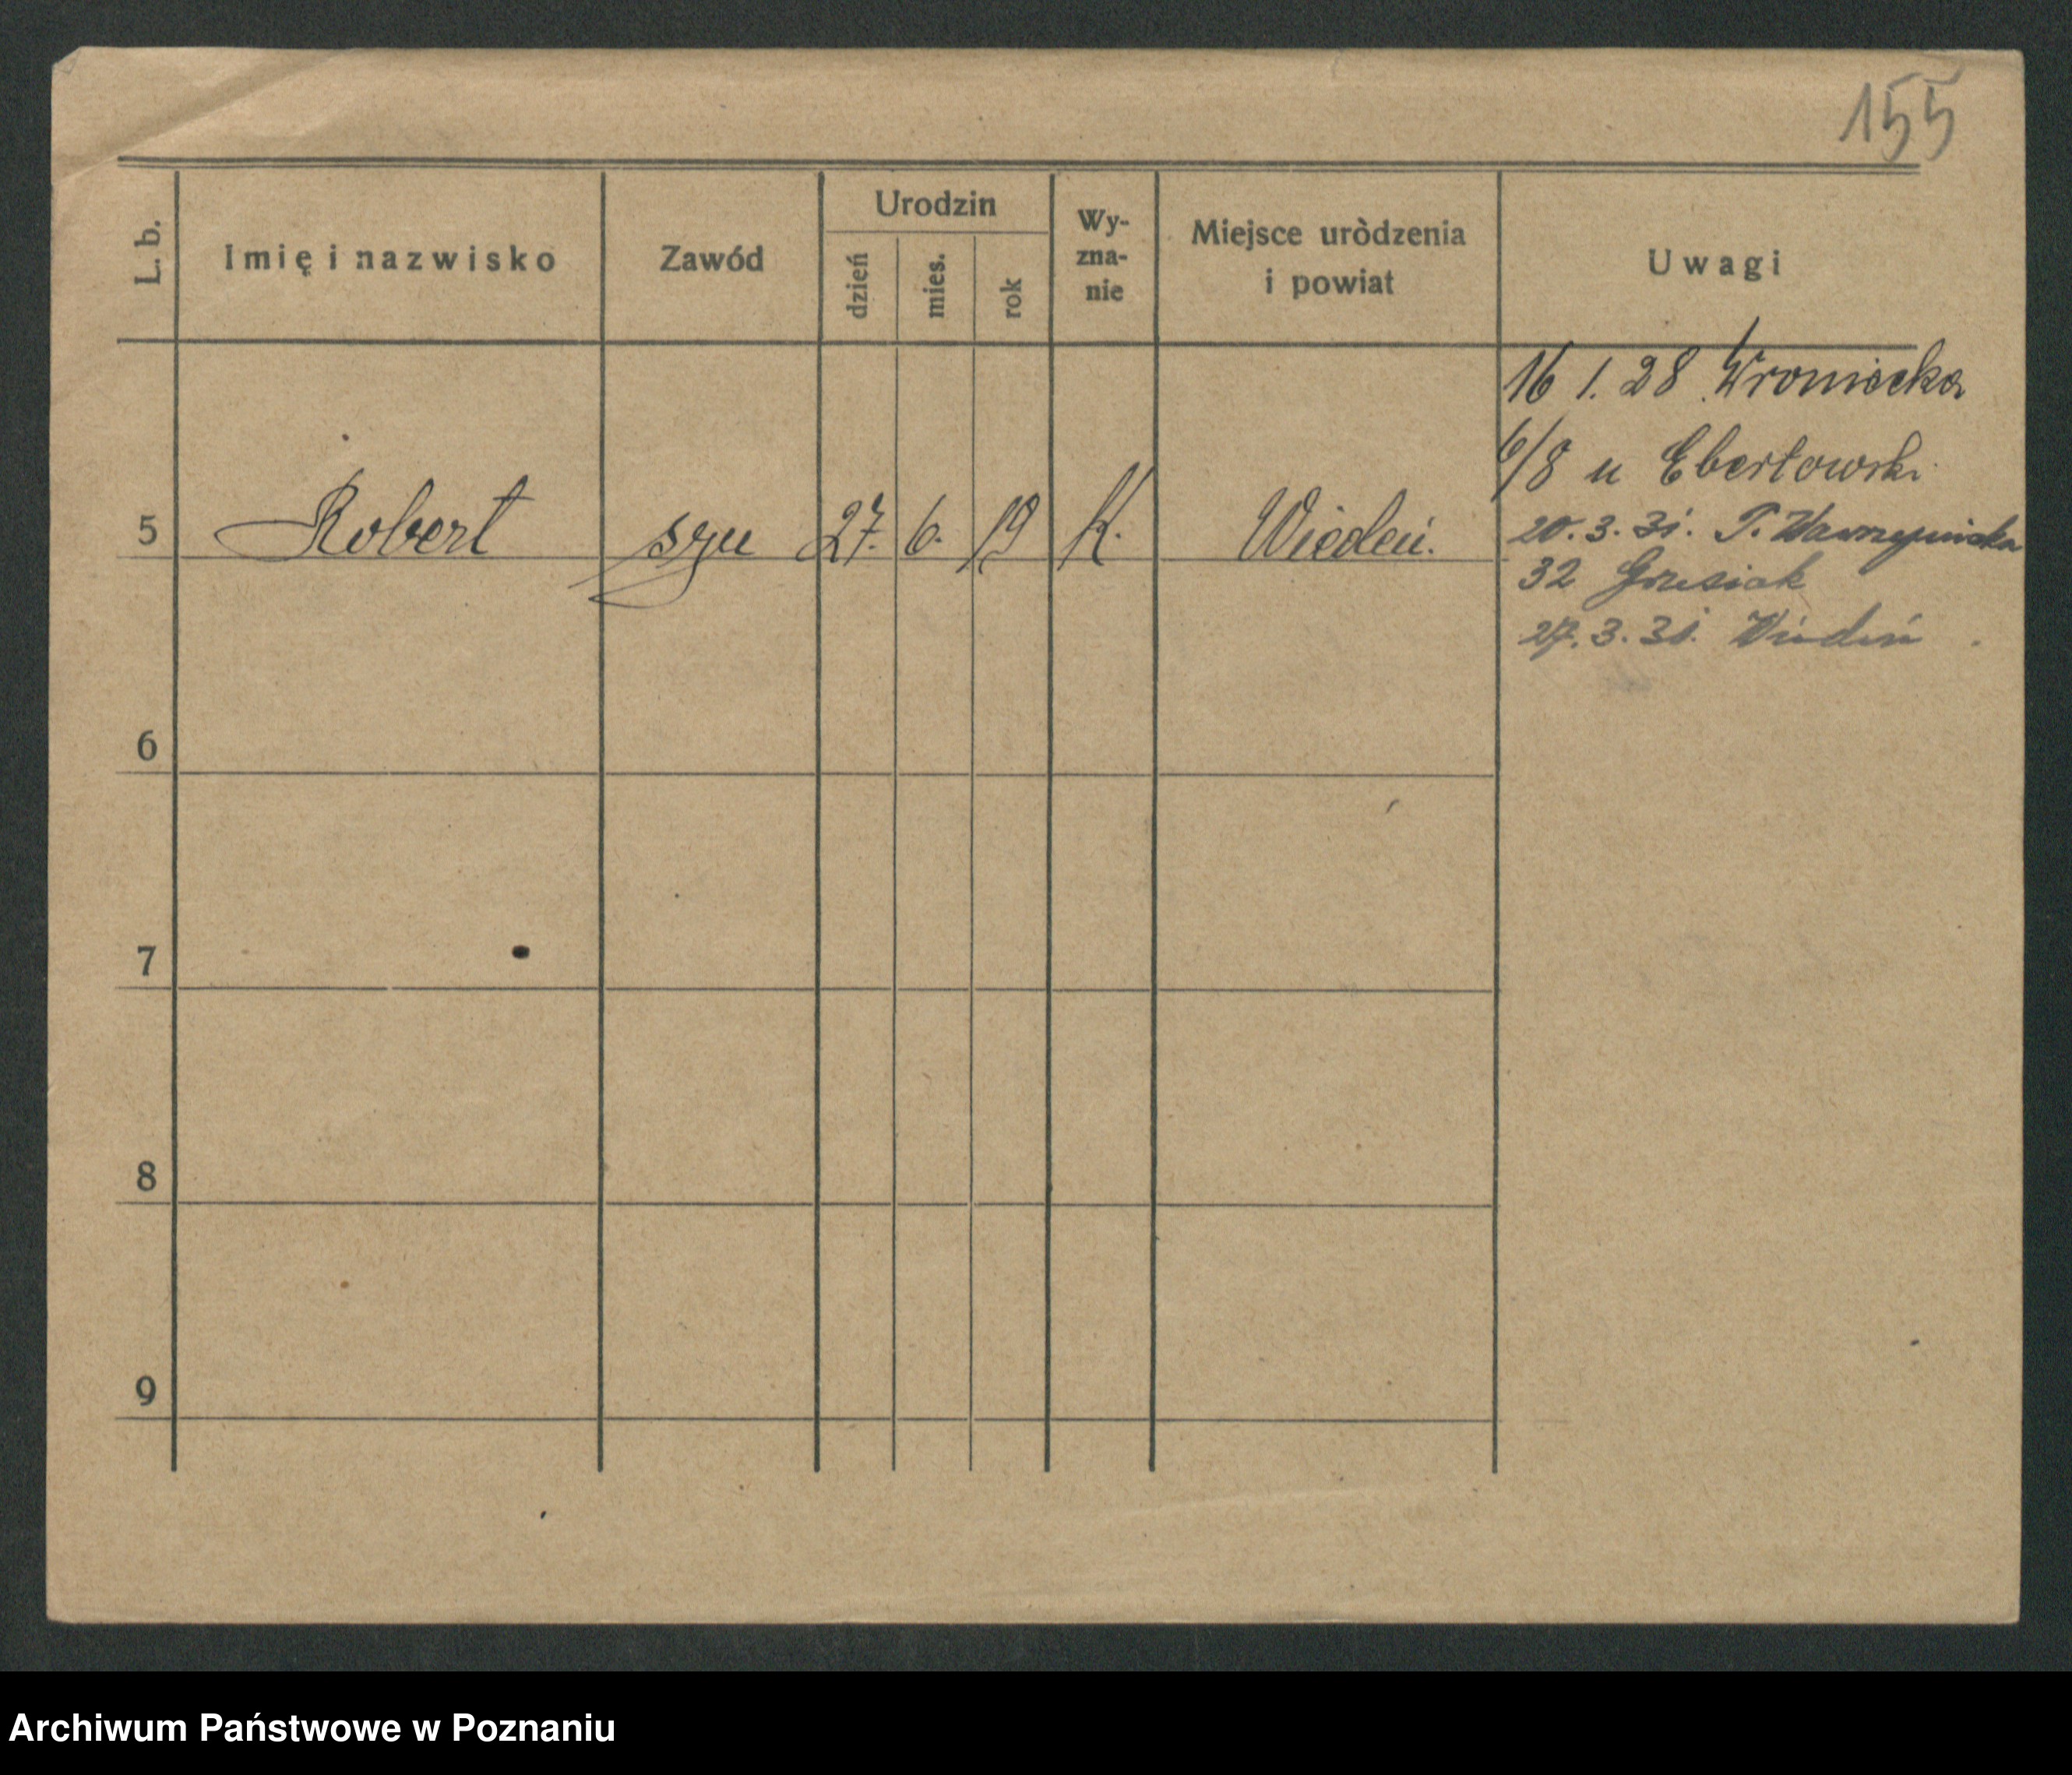 155
L. b.
Imię i nazwisko
Zawód
Urodzin
dzień
mies.
rok
Wy-
zna-
nie
Miejsce uròdzenia
i powiat
Uwagi
16 1. 28 Wroniecka
6/8 u Ebertowski
5 Robert syn 27. 6. 19 K. Wiedeń.
20. 3. 31. P. Wawrzyniaka
32 Grzesiak
27. 3. 31. Wiedeń
6
7
8
9
Archiwum Państwowe w Poznaniu